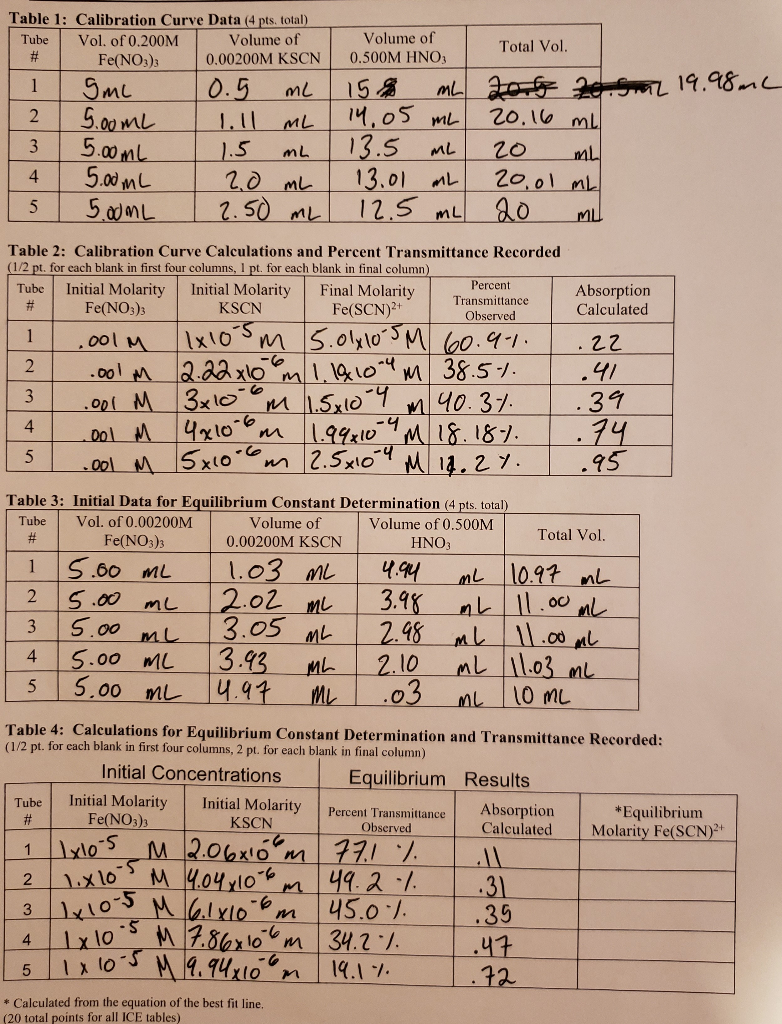 Table 1: Calibration Curve Data (4 pts. total)
Tube # Vol. of 0.200M Fe(NO3)3 Volume of 0.00200M KSCN Volume of 0.500M HNO3 Total Vol.
1 5mL 0.5 mL 15 mL 20.5 20.5mL 19.98mL
2 5.00mL 1.11 mL 14.05 mL 20.16 mL
3 5.00mL 1.5 mL 13.5 mL 20 mL
4 5.00mL 2.0 mL 13.01 mL 20.01 mL
5 5.00mL 2.50 mL 12.5 mL 20 mL
Table 2: Calibration Curve Calculations and Percent Transmittance Recorded
(1/2 pt. for each blank in first four columns, 1 pt. for each blank in final column)
Tube # Initial Molarity Fe(NO3)3 Initial Molarity KSCN Final Molarity Fe(SCN)2+ Percent Transmittance Observed Absorption Calculated
1 .001 M 1x10-5 m 5.01x10-5 M 60.9% .22
2 .001 M 2.22x10-6 m 1.1x10-4 M 38.5% .41
3 .001 M 3x10-6 m 1.5x10-4 M 40.3% .39
4 .001 M 4x10-6 m 1.99x10-4 M 18.18% .74
5 .001 M 5x10-6 m 2.5x10-4 M 11.2% .95
Table 3: Initial Data for Equilibrium Constant Determination (4 pts. total)
Tube # Vol. of 0.00200M Fe(NO3)3 Volume of 0.00200M KSCN Volume of 0.500M HNO3 Total Vol.
1 5.00 mL 1.03 mL 4.94 mL 10.97 mL
2 5.00 mL 2.02 mL 3.98 mL 11.00 mL
3 5.00 mL 3.05 mL 2.98 mL 11.00 mL
4 5.00 mL 3.93 mL 2.10 mL 11.03 mL
5 5.00 mL 4.97 mL .03 mL 10 mL
Table 4: Calculations for Equilibrium Constant Determination and Transmittance Recorded:
(1/2 pt. for each blank in first four columns, 2 pt. for each blank in final column)
Initial Concentrations Equilibrium Results
Tube # Initial Molarity Fe(NO3)3 Initial Molarity KSCN Percent Transmittance Observed Absorption Calculated *Equilibrium Molarity Fe(SCN)2+
1 1x10-5 M 2.06x10-6 m 77.1 % .11
2 1.x10-5 M 4.04x10-6 m 49.2 % .31
3 1x10-5 M 6.1x10-6 m 45.0 % .35
4 1x10-5 M 7.86x10-6 m 34.2 % .47
5 1x10-5 M 9.94x10-6 m 19.1 % .72
* Calculated from the equation of the best fit line.
(20 total points for all ICE tables)